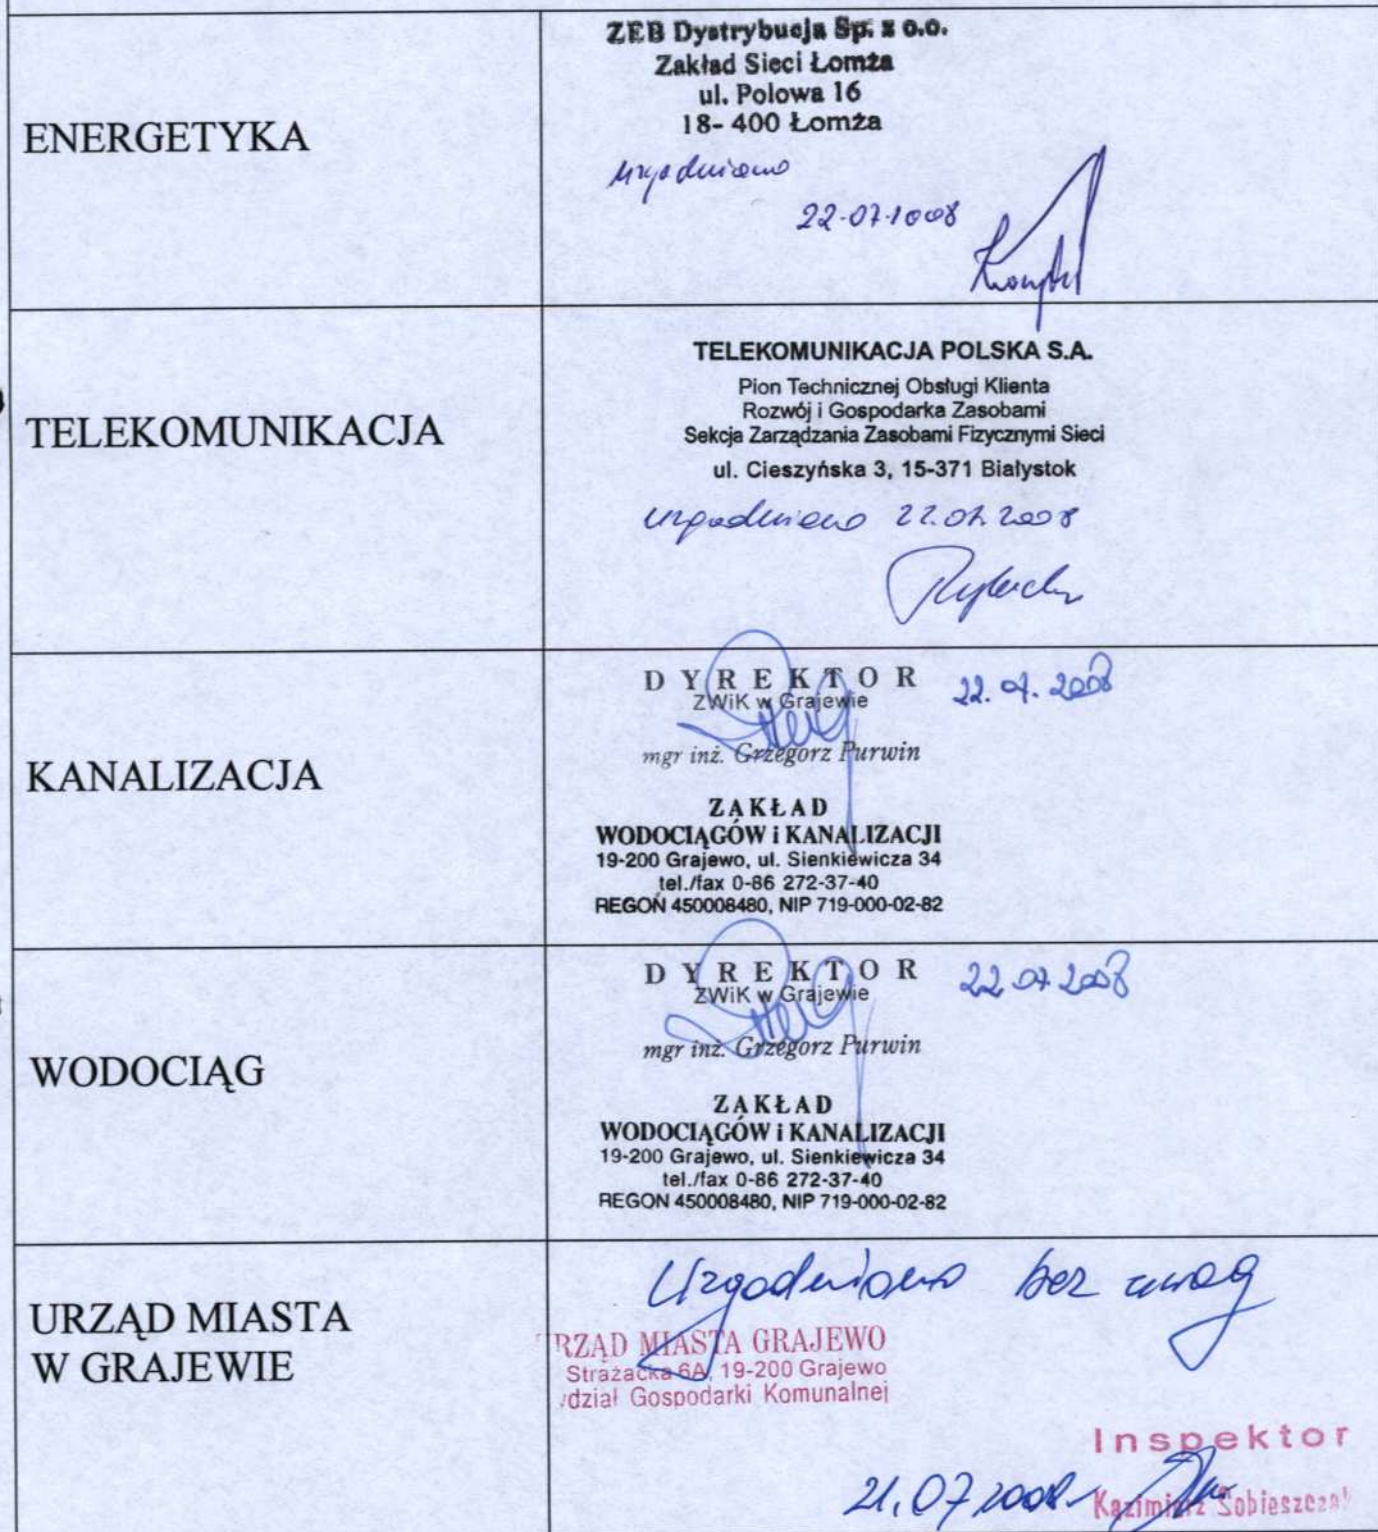 ENERGETYKA
ZEB Dystrybucja Sp. z o.o.
Zakład Sieci Łomża
ul. Polowa 16
18- 400 Łomża
uzgodniono
22.07.2008
TELEKOMUNIKACJA
TELEKOMUNIKACJA POLSKA S.A.
Pion Technicznej Obsługi Klienta
Rozwój i Gospodarka Zasobami
Sekcja Zarządzania Zasobami Fizycznymi Sieci
ul. Cieszyńska 3, 15-371 Białystok
uzgodniono 22.07.2008
KANALIZACJA
DYREKTOR 22.07.2008
ZWiK w Grajewie
mgr inż. Grzegorz Purwin
ZAKŁAD
WODOCIĄGÓW i KANALIZACJI
19-200 Grajewo, ul. Sienkiewicza 34
tel./fax 0-86 272-37-40
REGON 450008480, NIP 719-000-02-82
WODOCIĄG
DYREKTOR 22.07.2008
ZWiK w Grajewie
mgr inż. Grzegorz Purwin
ZAKŁAD
WODOCIĄGÓW i KANALIZACJI
19-200 Grajewo, ul. Sienkiewicza 34
tel./fax 0-86 272-37-40
REGON 450008480, NIP 719-000-02-82
URZĄD MIASTA
W GRAJEWIE
Uzgodniono bez uwag
RZĄD MIASTA GRAJEWO
Strażacka 6A, 19-200 Grajewo
dział Gospodarki Komunalnej
Inspektor
21.07.2008 Kazimierz Sobieszczak